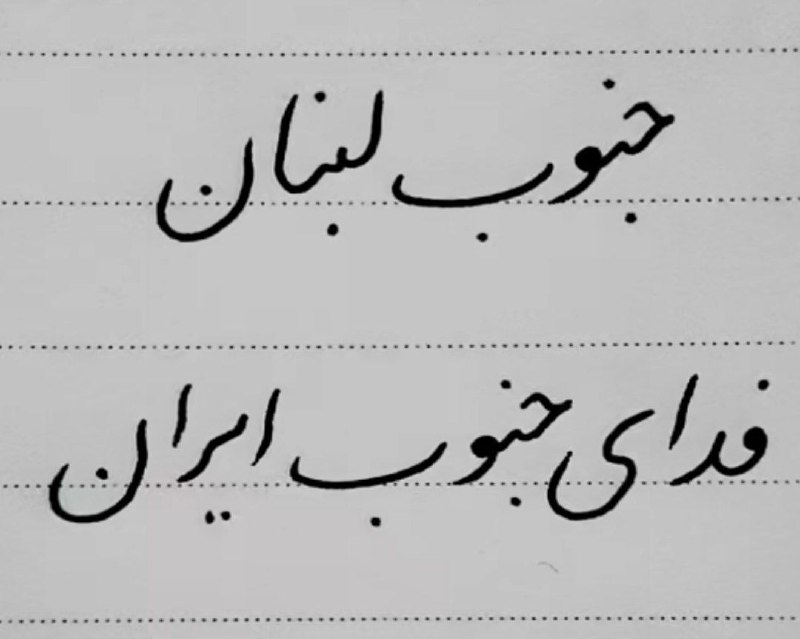 جنوب لبنان
فدای جنوب ایران